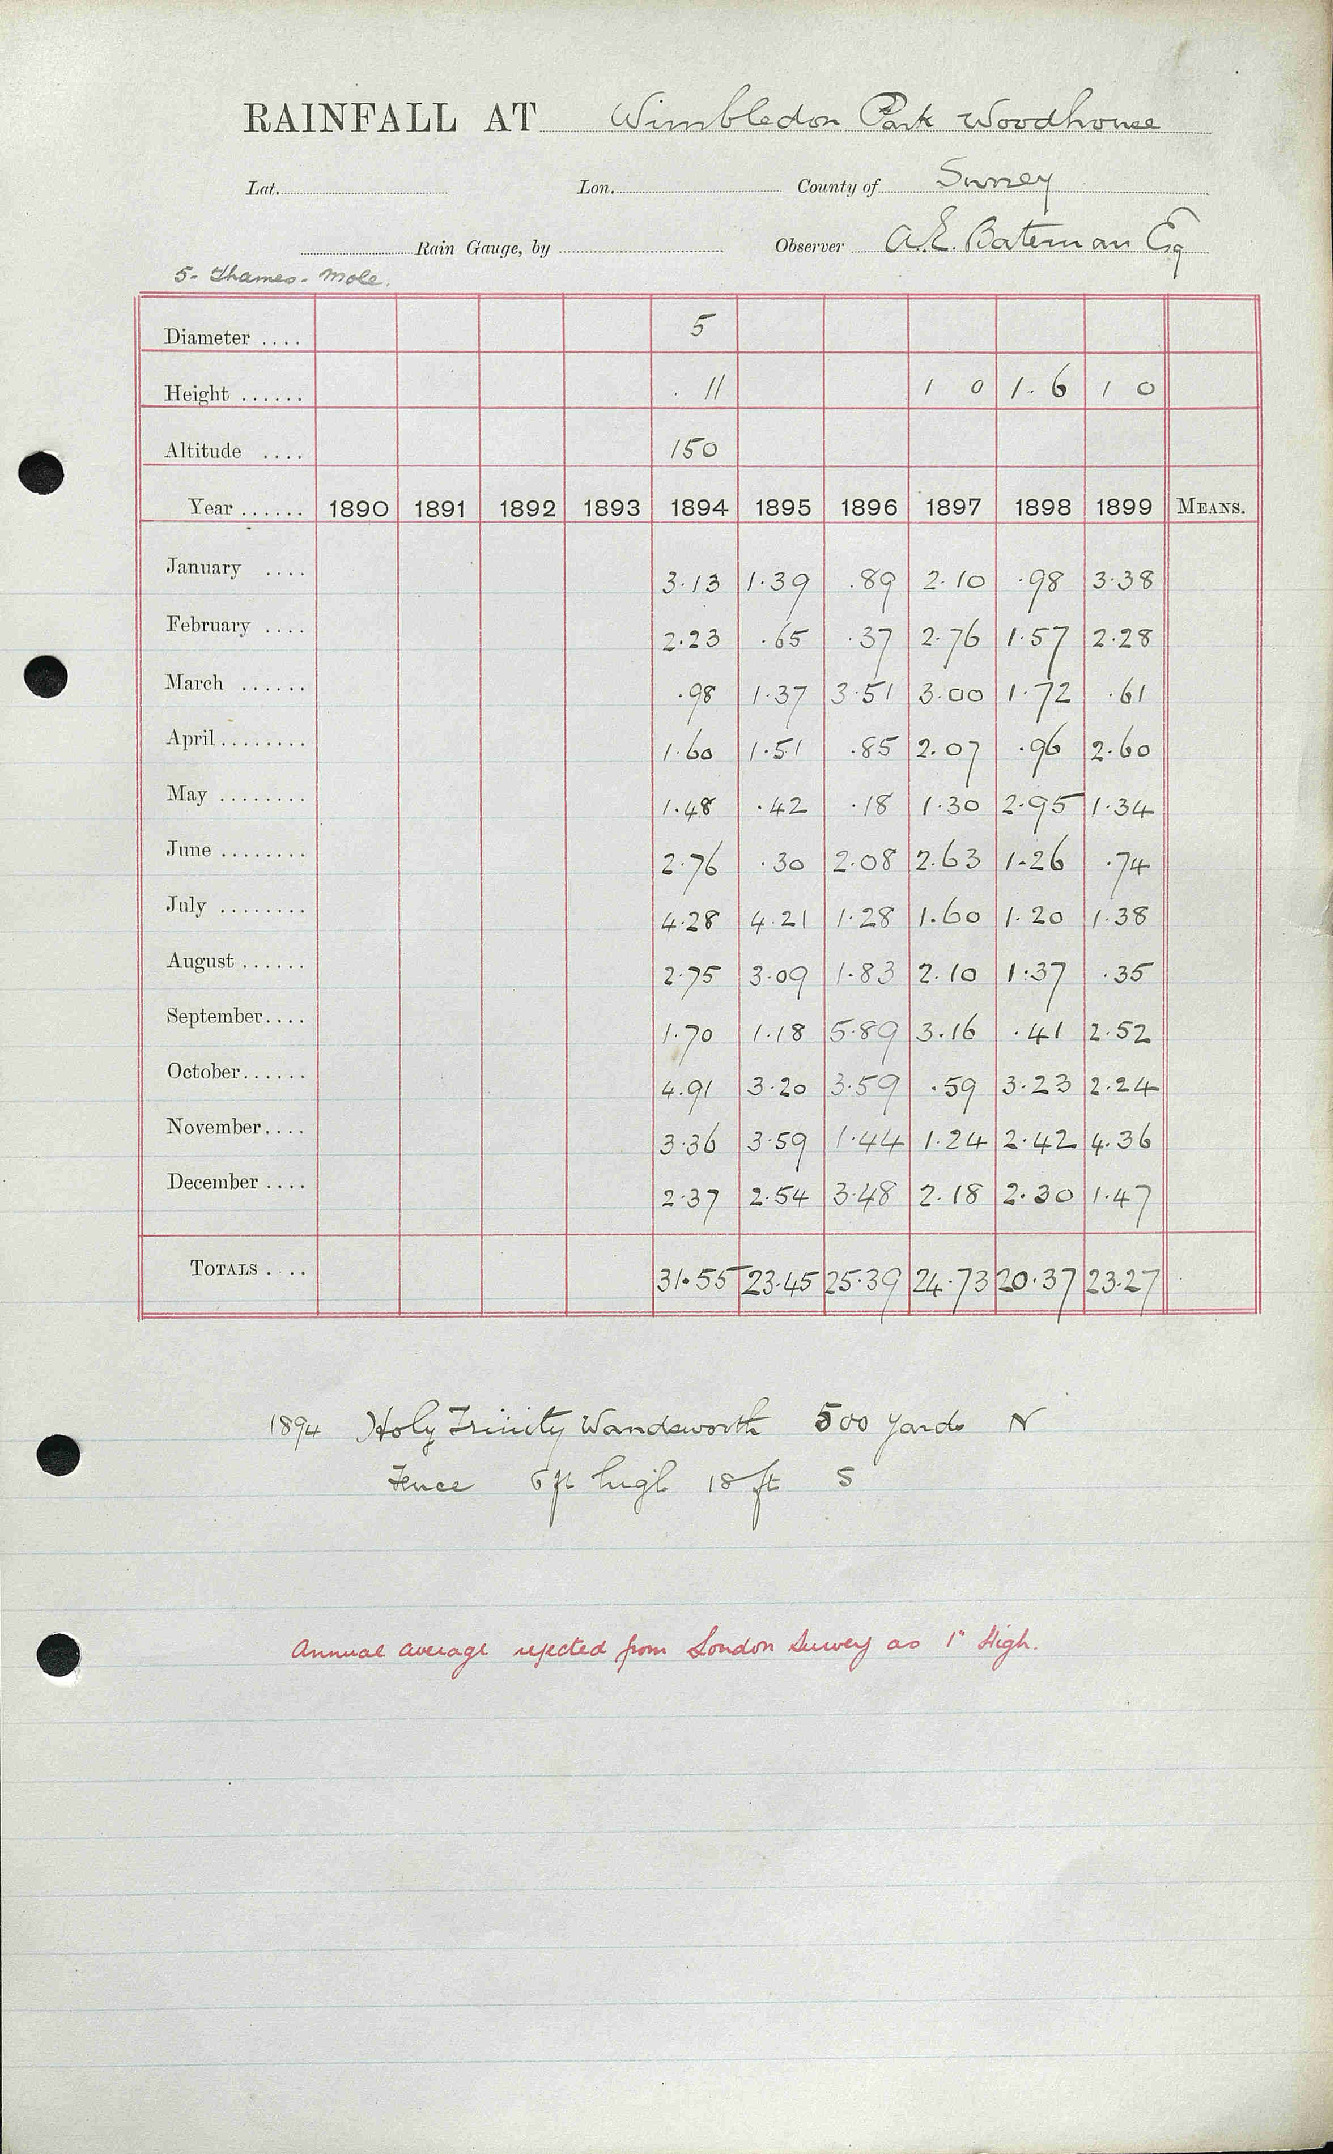 RAINFALL AT Wimbledon Park Woodhouse
Lat. Lon. County of Surrey
Rain Gauge, by Observer A.E. Bateman Esq
5 - Thames - Mole.
Diameter .... 5
Height ...... . 11 1 0 1. 6 1 0
Altitude .... 150
Year ...... 1890 1891 1892 1893 1894 1895 1896 1897 1898 1899 MEANS.
January .... 3.13 1.39 .89 2.10 .98 3.38
February .... 2.23 .65 .37 2.76 1.57 2.28
March ...... .98 1.37 3.51 3.00 1.72 .61
April ........ 1.60 1.51 .85 2.07 .96 2.60
May ........ 1.48 .42 .18 1.30 2.95 1.34
June ........ 2.76 .30 2.08 2.63 1.26 .74
July ........ 4.28 4.21 1.28 1.60 1.20 1.38
August ...... 2.75 3.09 1.83 2.10 1.37 .35
September .... 1.70 1.18 5.89 3.16 .41 2.52
October ...... 4.91 3.20 3.59 .59 3.23 2.24
November .... 3.36 3.59 1.44 1.24 2.42 4.36
December .... 2.37 2.54 3.48 2.18 2.30 1.47
TOTALS . .. 31.55 23.45 25.39 24.73 20.37 23.27
1894 Holy Trinity Wandsworth 500 yards N
Fence 6 ft high 18 ft S
Annual average rejected from London Survey as 1" High.